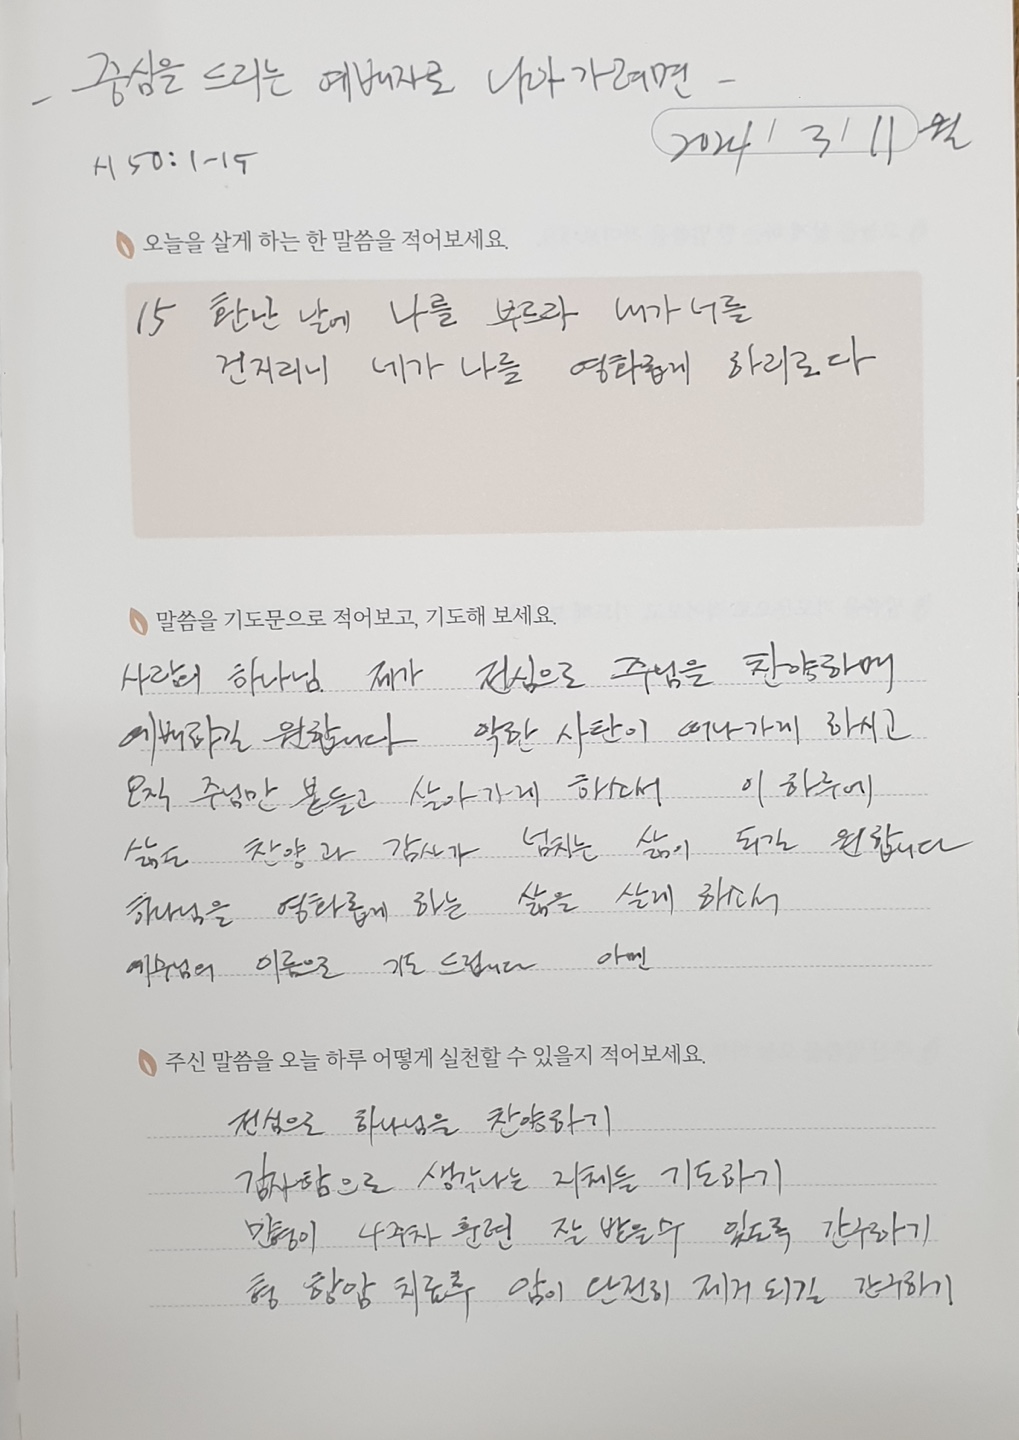 - 중심을 드리는 예배자로 나아가려면 -
2024 / 3 / 11 월
시 50:1-15
오늘을 살게 하는 한 말씀을 적어보세요.
15 환난 날에 나를 부르라 내가 너를
건지리니 네가 나를 영화롭게 하리로다
말씀을 기도문으로 적어보고, 기도해 보세요.
사랑의 하나님. 제가 전심으로 주님을 찬양하며
예배하길 원합니다 악한 사탄이 떠나가게 하시고
오직 주님만 붙들고 살아가게 하소서 이 하루에
삶도 찬양과 감사가 넘치는 삶이 되길 원합니다
하나님을 영화롭게 하는 삶을 살게 하소서
예수님의 이름으로 기도 드립니다 아멘
주신 말씀을 오늘 하루 어떻게 실천할 수 있을지 적어보세요.
전심으로 하나님을 찬양하기
감사함으로 생각나는 지체들 기도하기
4주차 훈련 잘 받을수 있도록 간구하기
형 항암 치료후 암이 단전히 제거 되길 간구하기